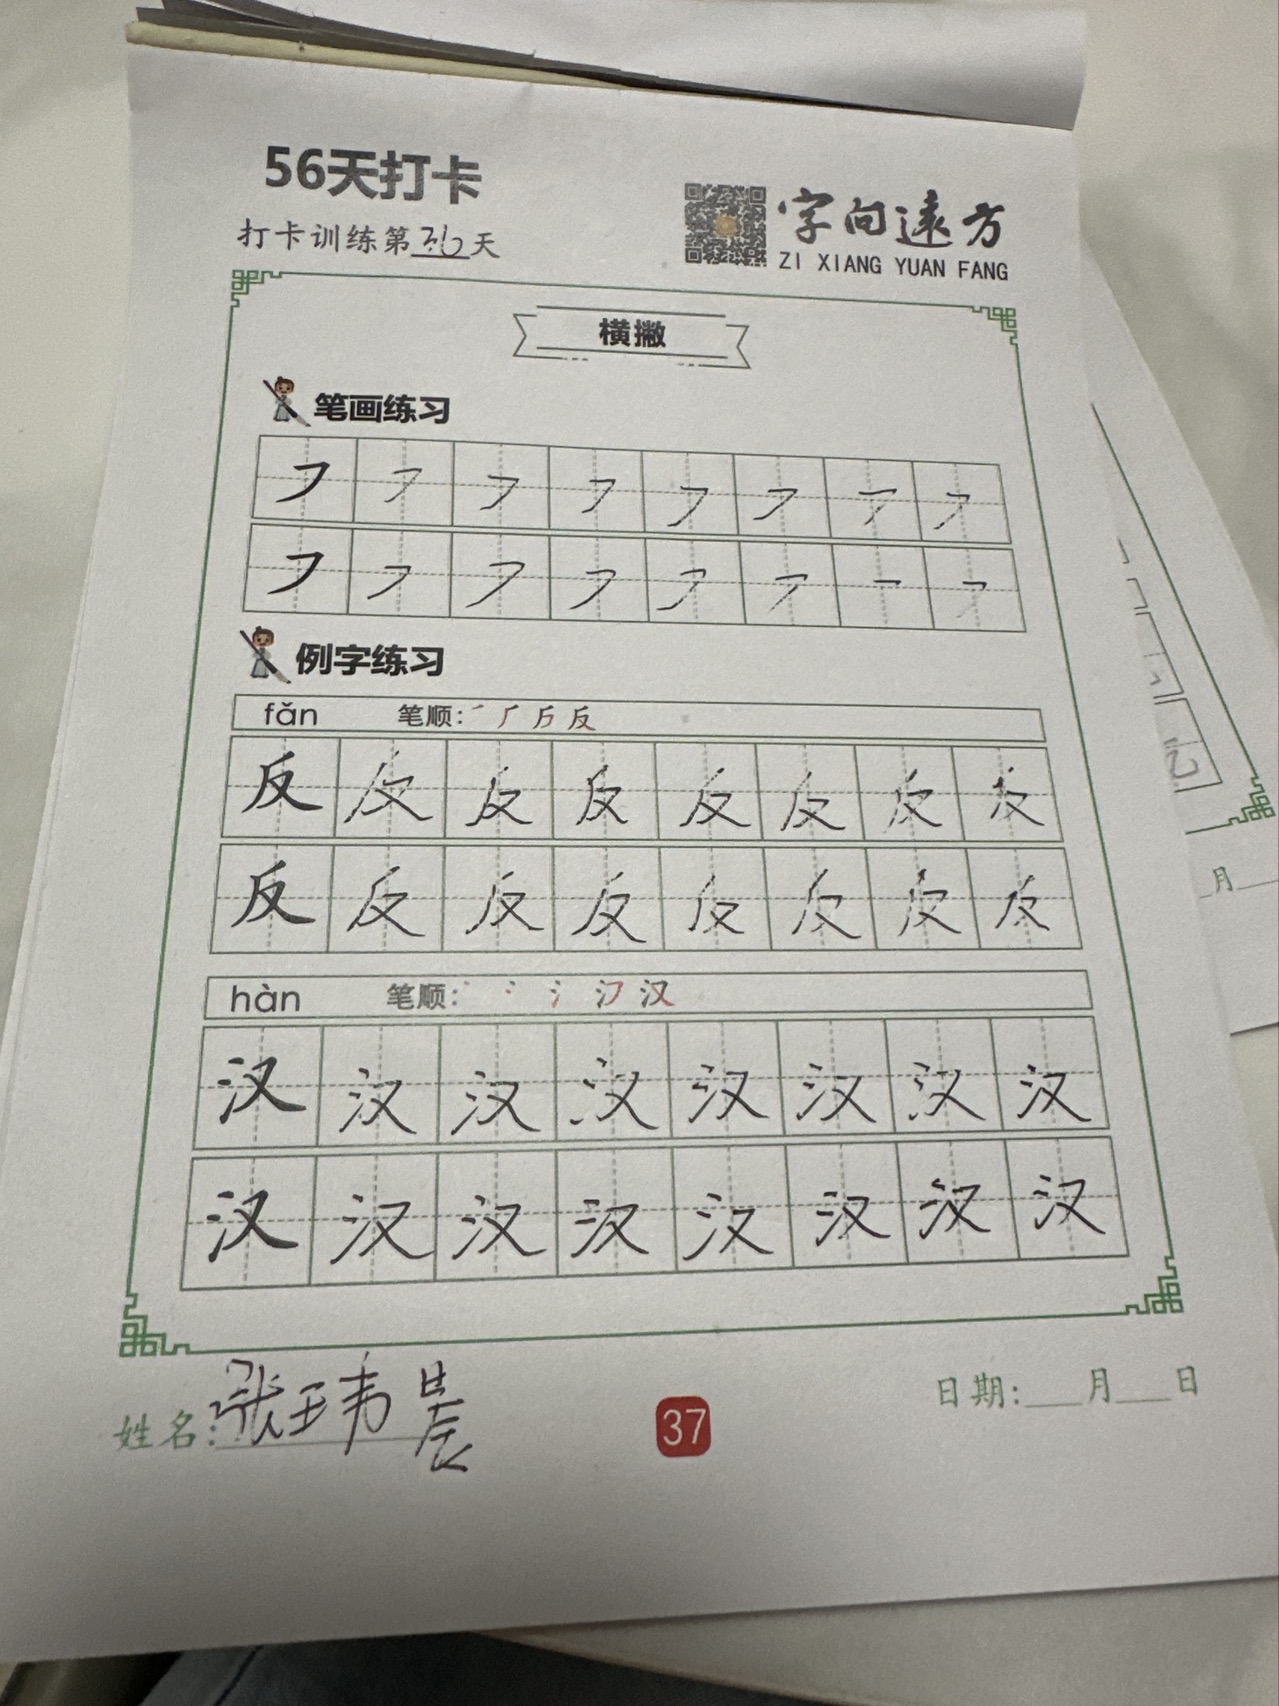 56天打卡
打卡训练第36天
字向远方
ZI XIANG YUAN FANG
横撇
笔画练习
㇇ ㇇ ㇇ ㇇ ㇇ ㇇ ㇇ ㇇
㇇ ㇇ ㇇ ㇇ ㇇ ㇇ ㇇ ㇇
例字练习
fǎn 笔顺: 反
反 反 反 反 反 反 反 反
反 反 反 反 反 反 反 反
hàn 笔顺: 汉
汉 汉 汉 汉 汉 汉 汉 汉
汉 汉 汉 汉 汉 汉 汉 汉
姓名:张玮晨
37
日期:___月___日
月